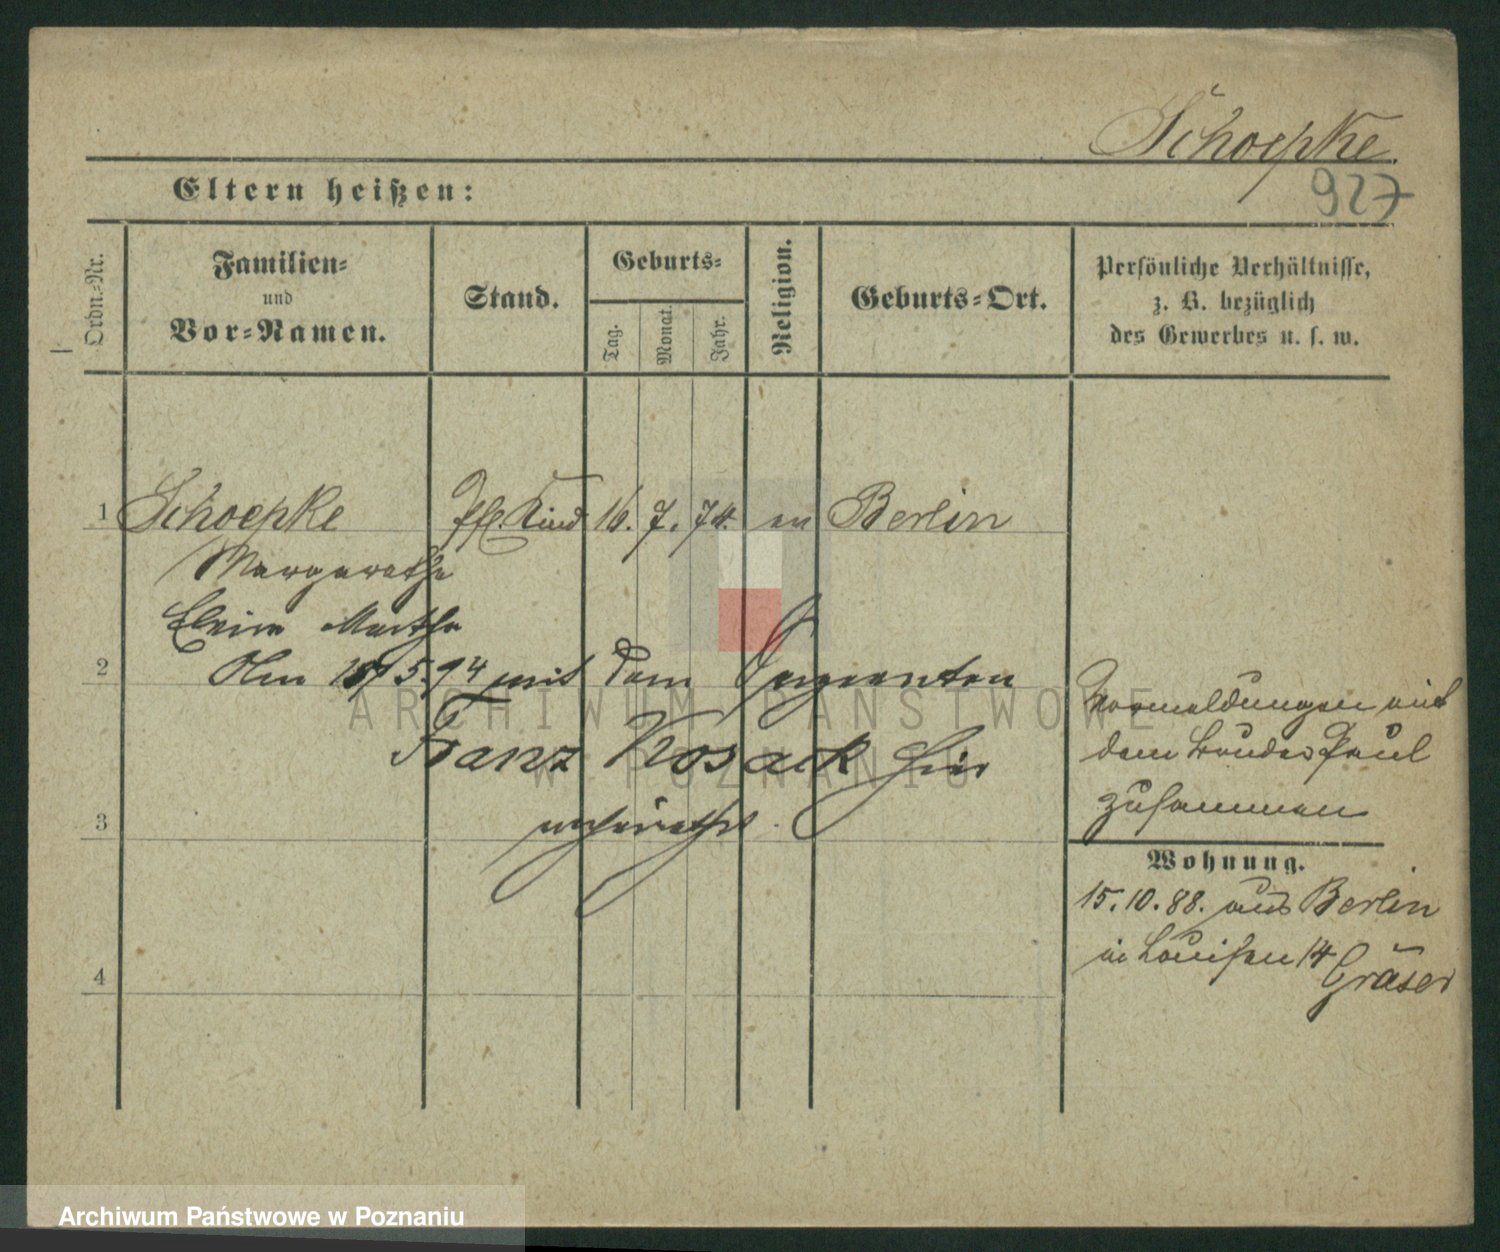 Schoepke.
927
Eltern heißen:
Ordn.-Nr.
Familien-
und
Vor-Namen.
Stand.
Geburts-
Tag.
Monat.
Jahr.
Religion.
Geburts-Ort.
Persönliche Verhältnisse,
z. B. bezüglich
des Gewerbes u. s. w.
1 Schoepke Pfl. Kind 16. 7. 74. ev Berlin
Margarethe
Martha
2 Am 5.94 mit dem Sergeanten
Franz Kosack hier
3 verheirathet.
4
Anmeldungen mit
dem Bruder Paul
zusammen
Wohnung.
15.10.88. aus Berlin
in Louisen 14
Gräser
ARCHIWUM PAŃSTWOWE
W POZNANIU
Archiwum Państwowe w Poznaniu